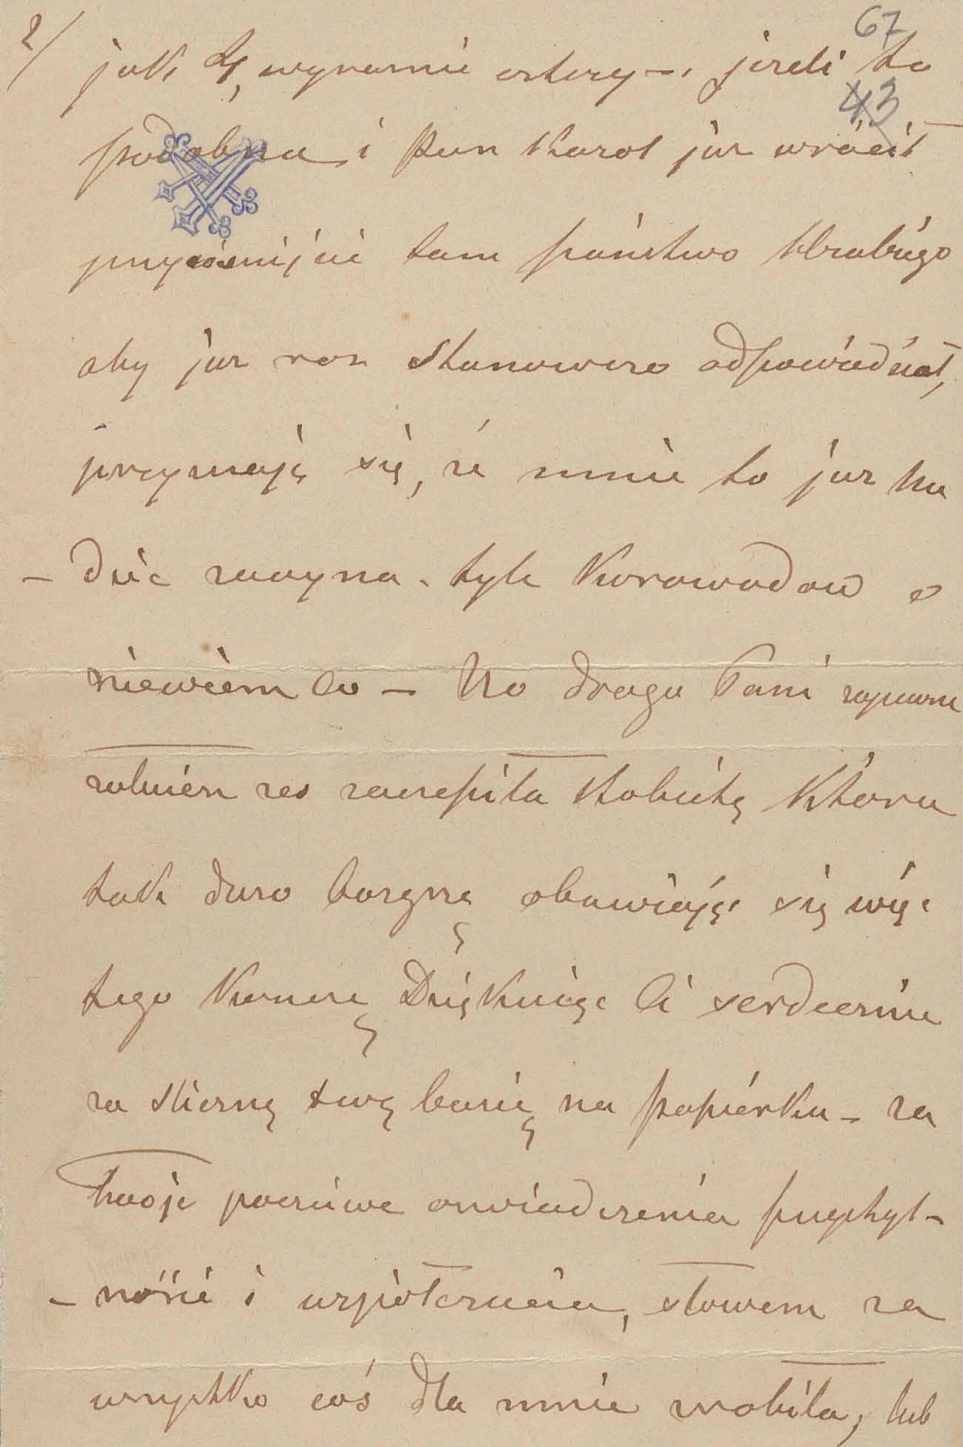 2/ 67
jak Ty, wyraźnie ostezy – jeżeli to
43
podobna i Pan Karol już wrócił
przyciśnijcie tam państwo Hrabiégo
aby już raz stanowczo odpowiedział,
przyznaję się, że mnie to już nu
– dzić zaczyna. tyle korowodów o
niewiem co – No droga Pani zapewne
zobaczysz zaczepiła Kobiétę która
tak dużo bazgrze obawiając się więc
tego kończę Dziękując Ci serdecznie
za śliczną twą buzię na papiérku – za
twoje poczciwe oświadczenia przychyl –
– ności i współczucia, słowem za
wszystko coś dla mnie zrobiła, lub